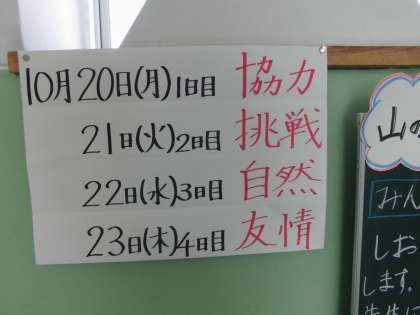 10月20日(月)1日目 協力
21日(火)2日目 挑戦
22日(水)3日目 自然
23日(木)4日目 友情
山の
みん
しお
します。